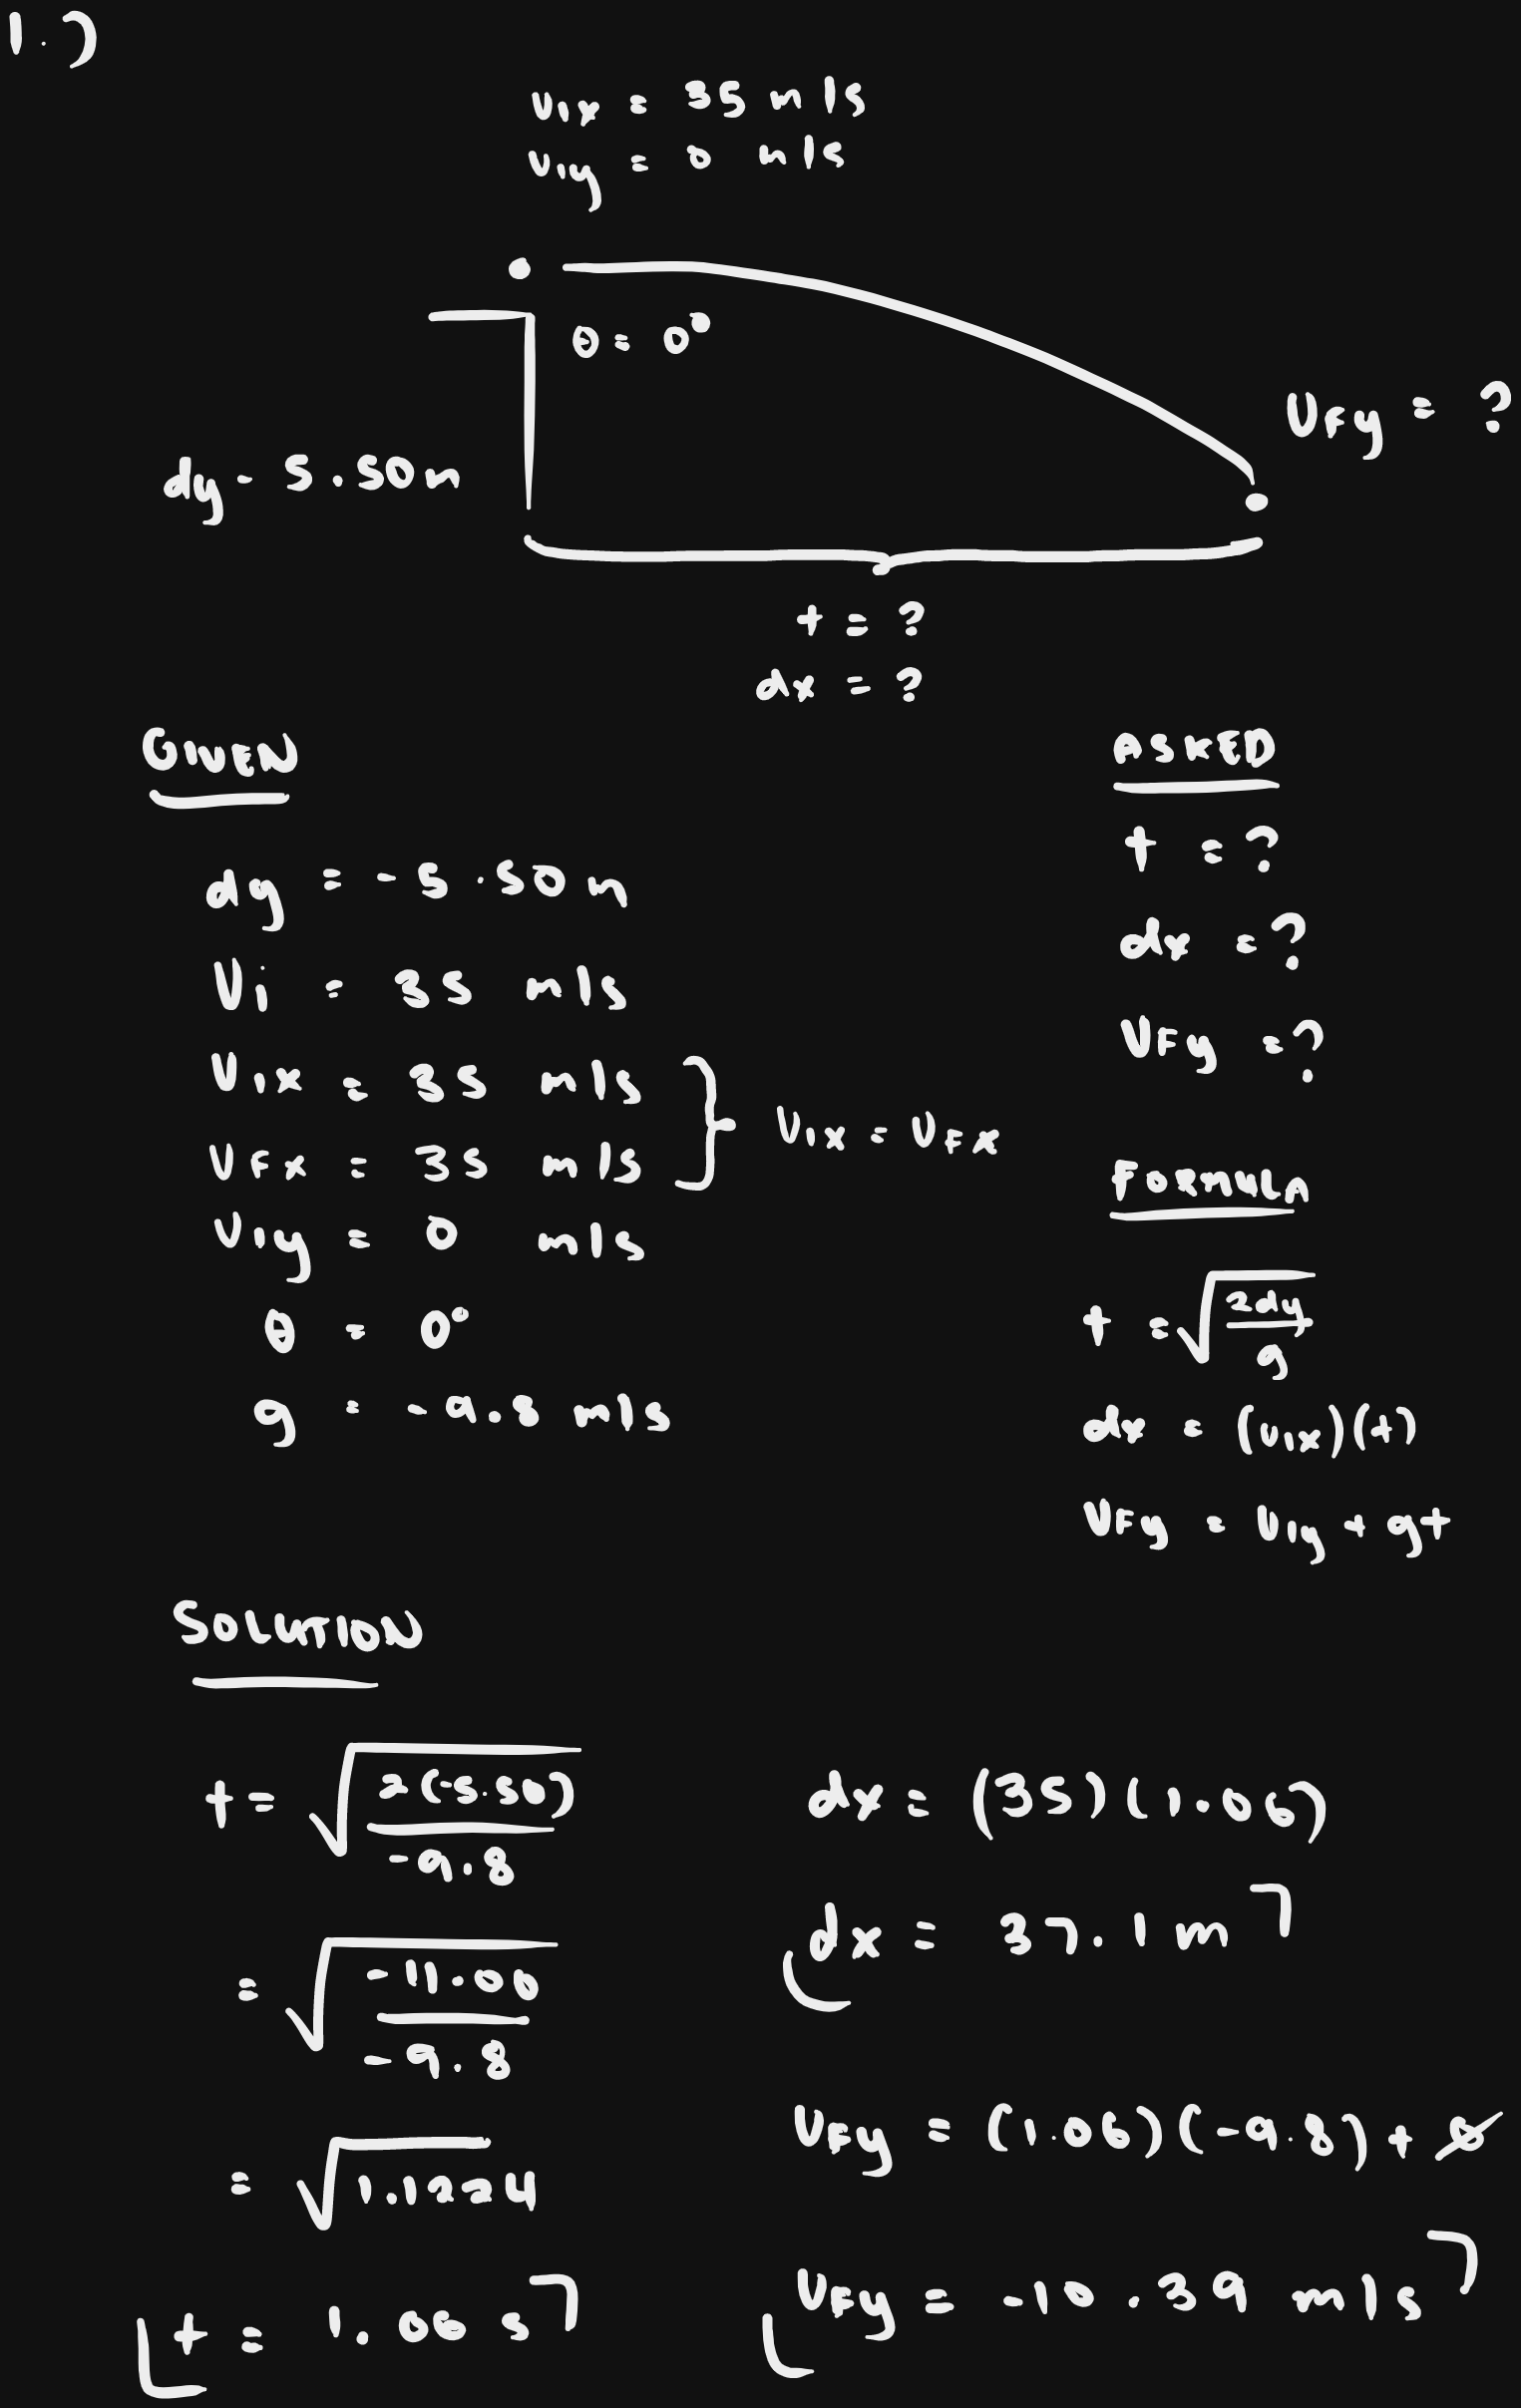 1.)
Vix = 35 m/s
Viy = 0 m/s
θ = 0°
VFy = ?
dy - 5.50m
t = ?
dx = ?
GIVEN
dy = -5.50 m
Vi = 35 m/s
Vix = 35 m/s
VFx = 35 m/s
Vix = VFx
Viy = 0 m/s
θ = 0°
g = -9.8 m/s
ASKED
t = ?
dx = ?
VFy = ?
FORMULA
t = √(2dy/g)
dx = (Vix)(t)
VFy = Viy + gt
SOLUTION
t = √(2(-5.50)/-9.8)
= √(-11.00/-9.8)
= √1.1224
t = 1.06 s
dx = (35)(1.06)
dx = 37.1 m
VFy = (1.06)(-9.8) + 0
VFy = -10.39 m/s